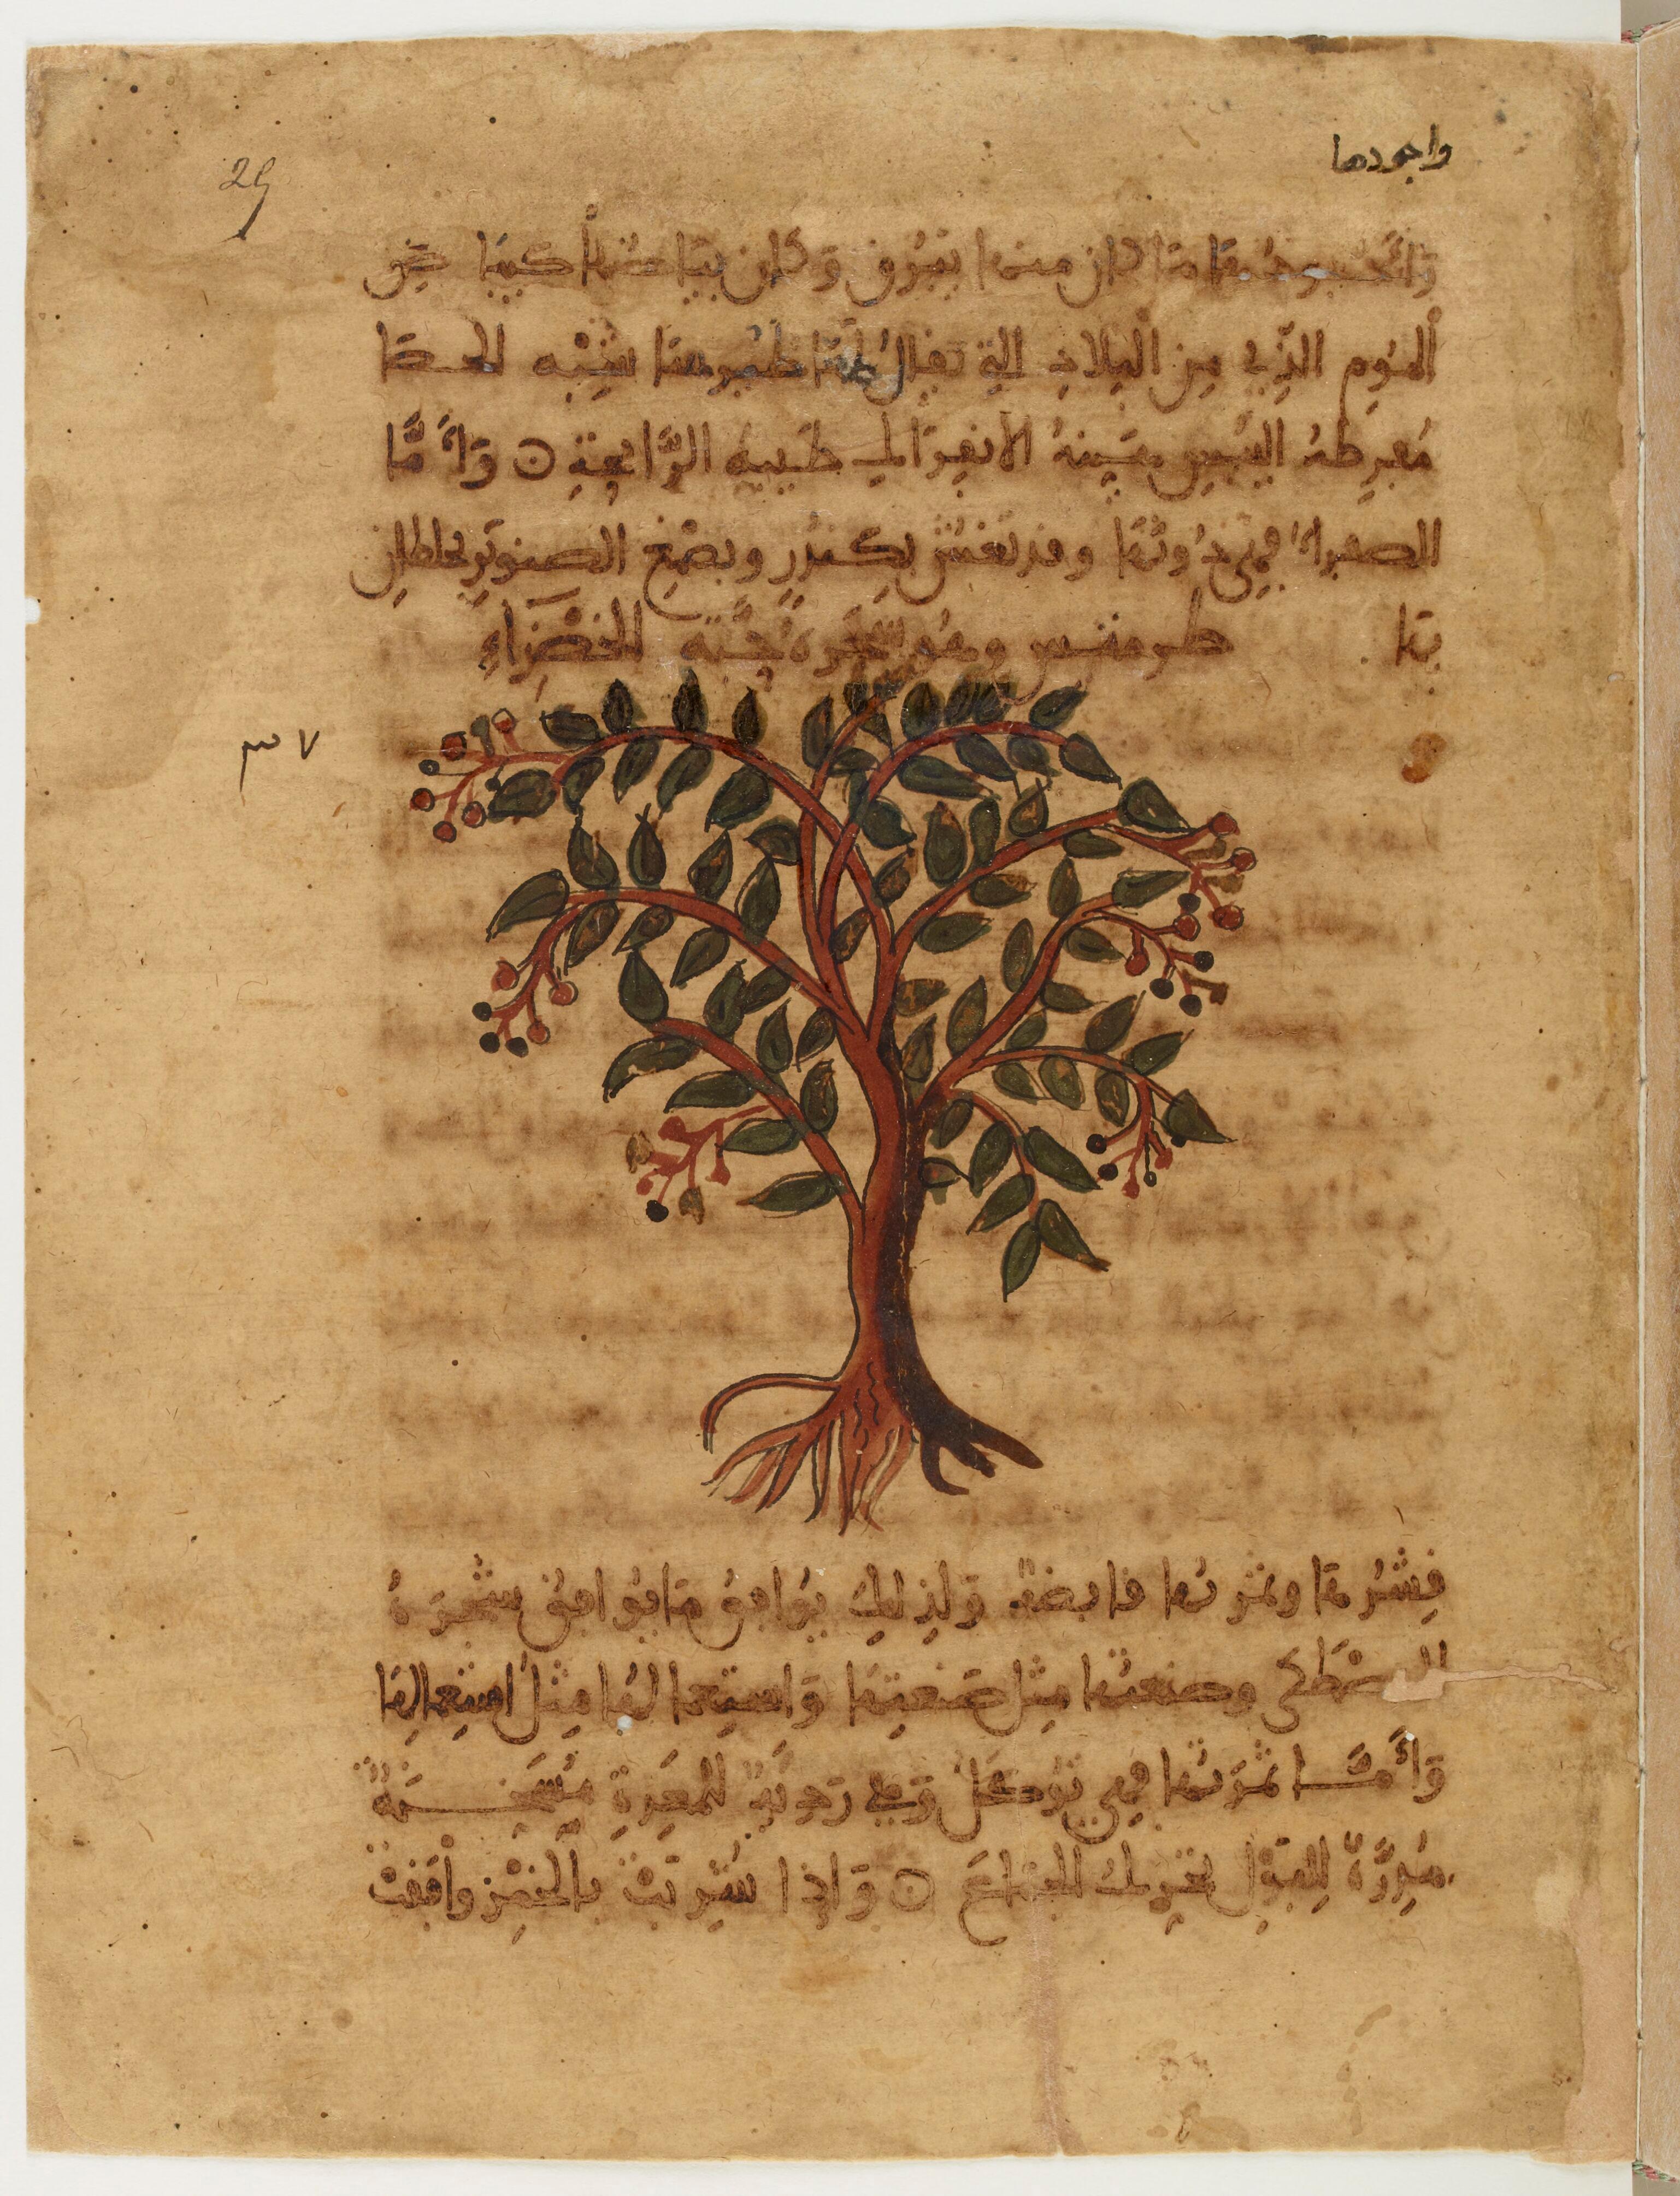 واجودها
29
ما كان منها يبرق وكان بياضها كبياض
الموم الذي من البلاد التي يقال لها شبه المصطا
مفرطة اليبس هينة الانفراك طيبة الرائحة ۞ وَأَمَّا
الصفراء فهي دُونَها وقد تغش بكندر وبصمغ الصنوبر يخلطان
بها طرمنتس وهو شجرة حبة الخضراء
٣٧
قشرها وثمرتها قابضة وَلذلك يوافق ما يوافق شجرة
المصطكى وصنعتها مثل صنعتها وَاستعمالها مثل استعمالها
وَأَمَّا ثمرتها فهي تؤكل وَهي رديّة للمعدة مُسَخِّنة
مُدِرَّة للبول تحرك الجماع ۞ وَاذا شربت بالخمر وافقت